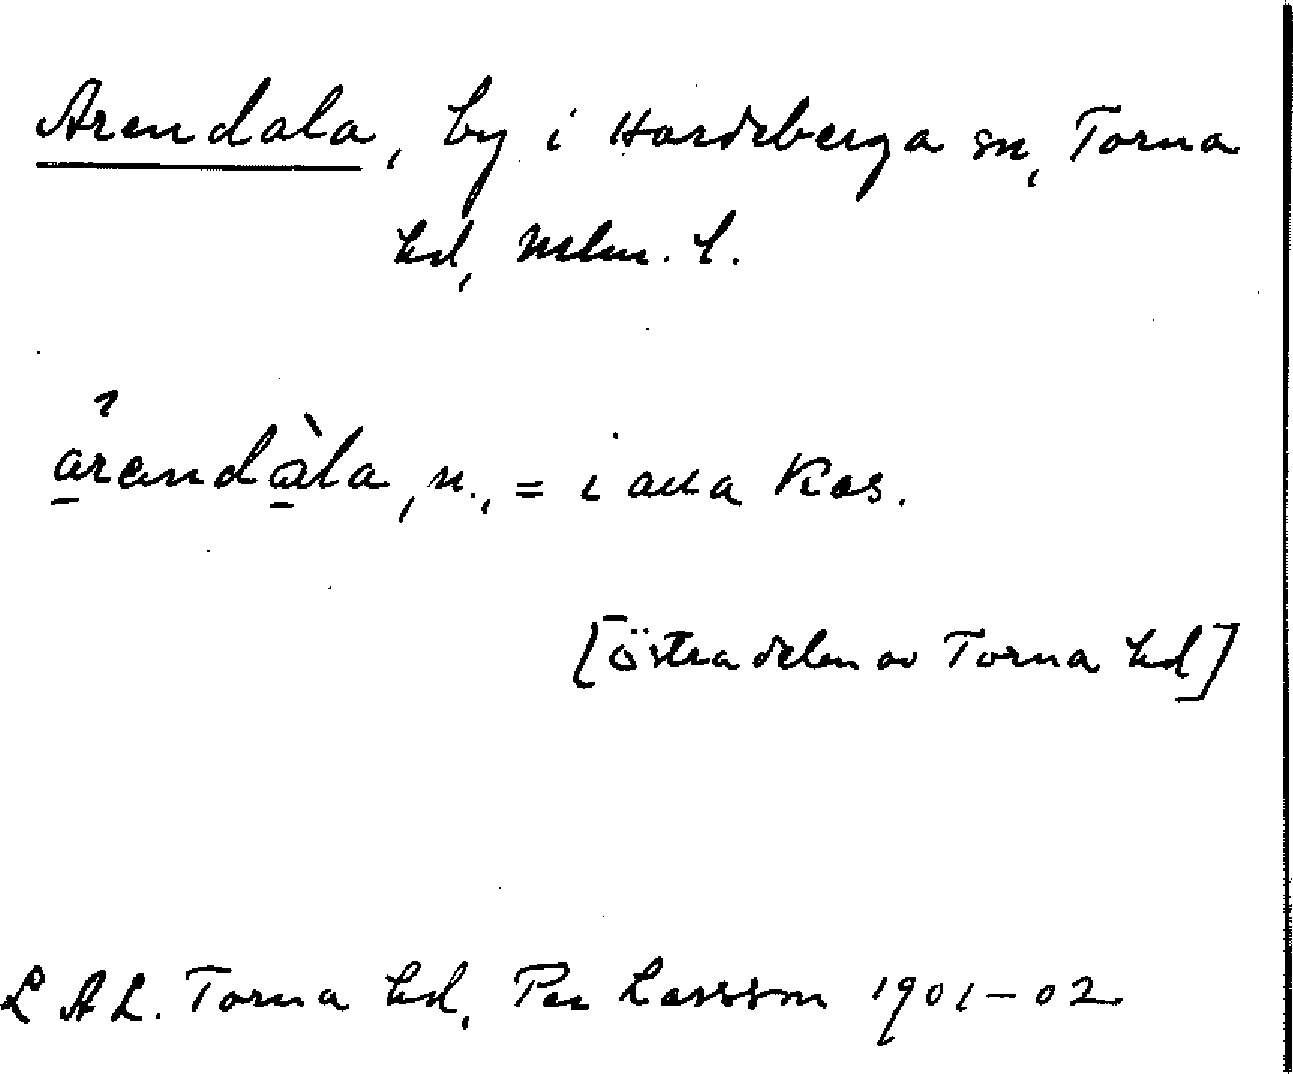 Arendala, by i Hardeberga sn, Torna
hd, Mlm. l.
arendàla, n., = i alla Kas.
[Östra delen av Torna hd]
L A L. Torna hd, Per Larsson 1901–02